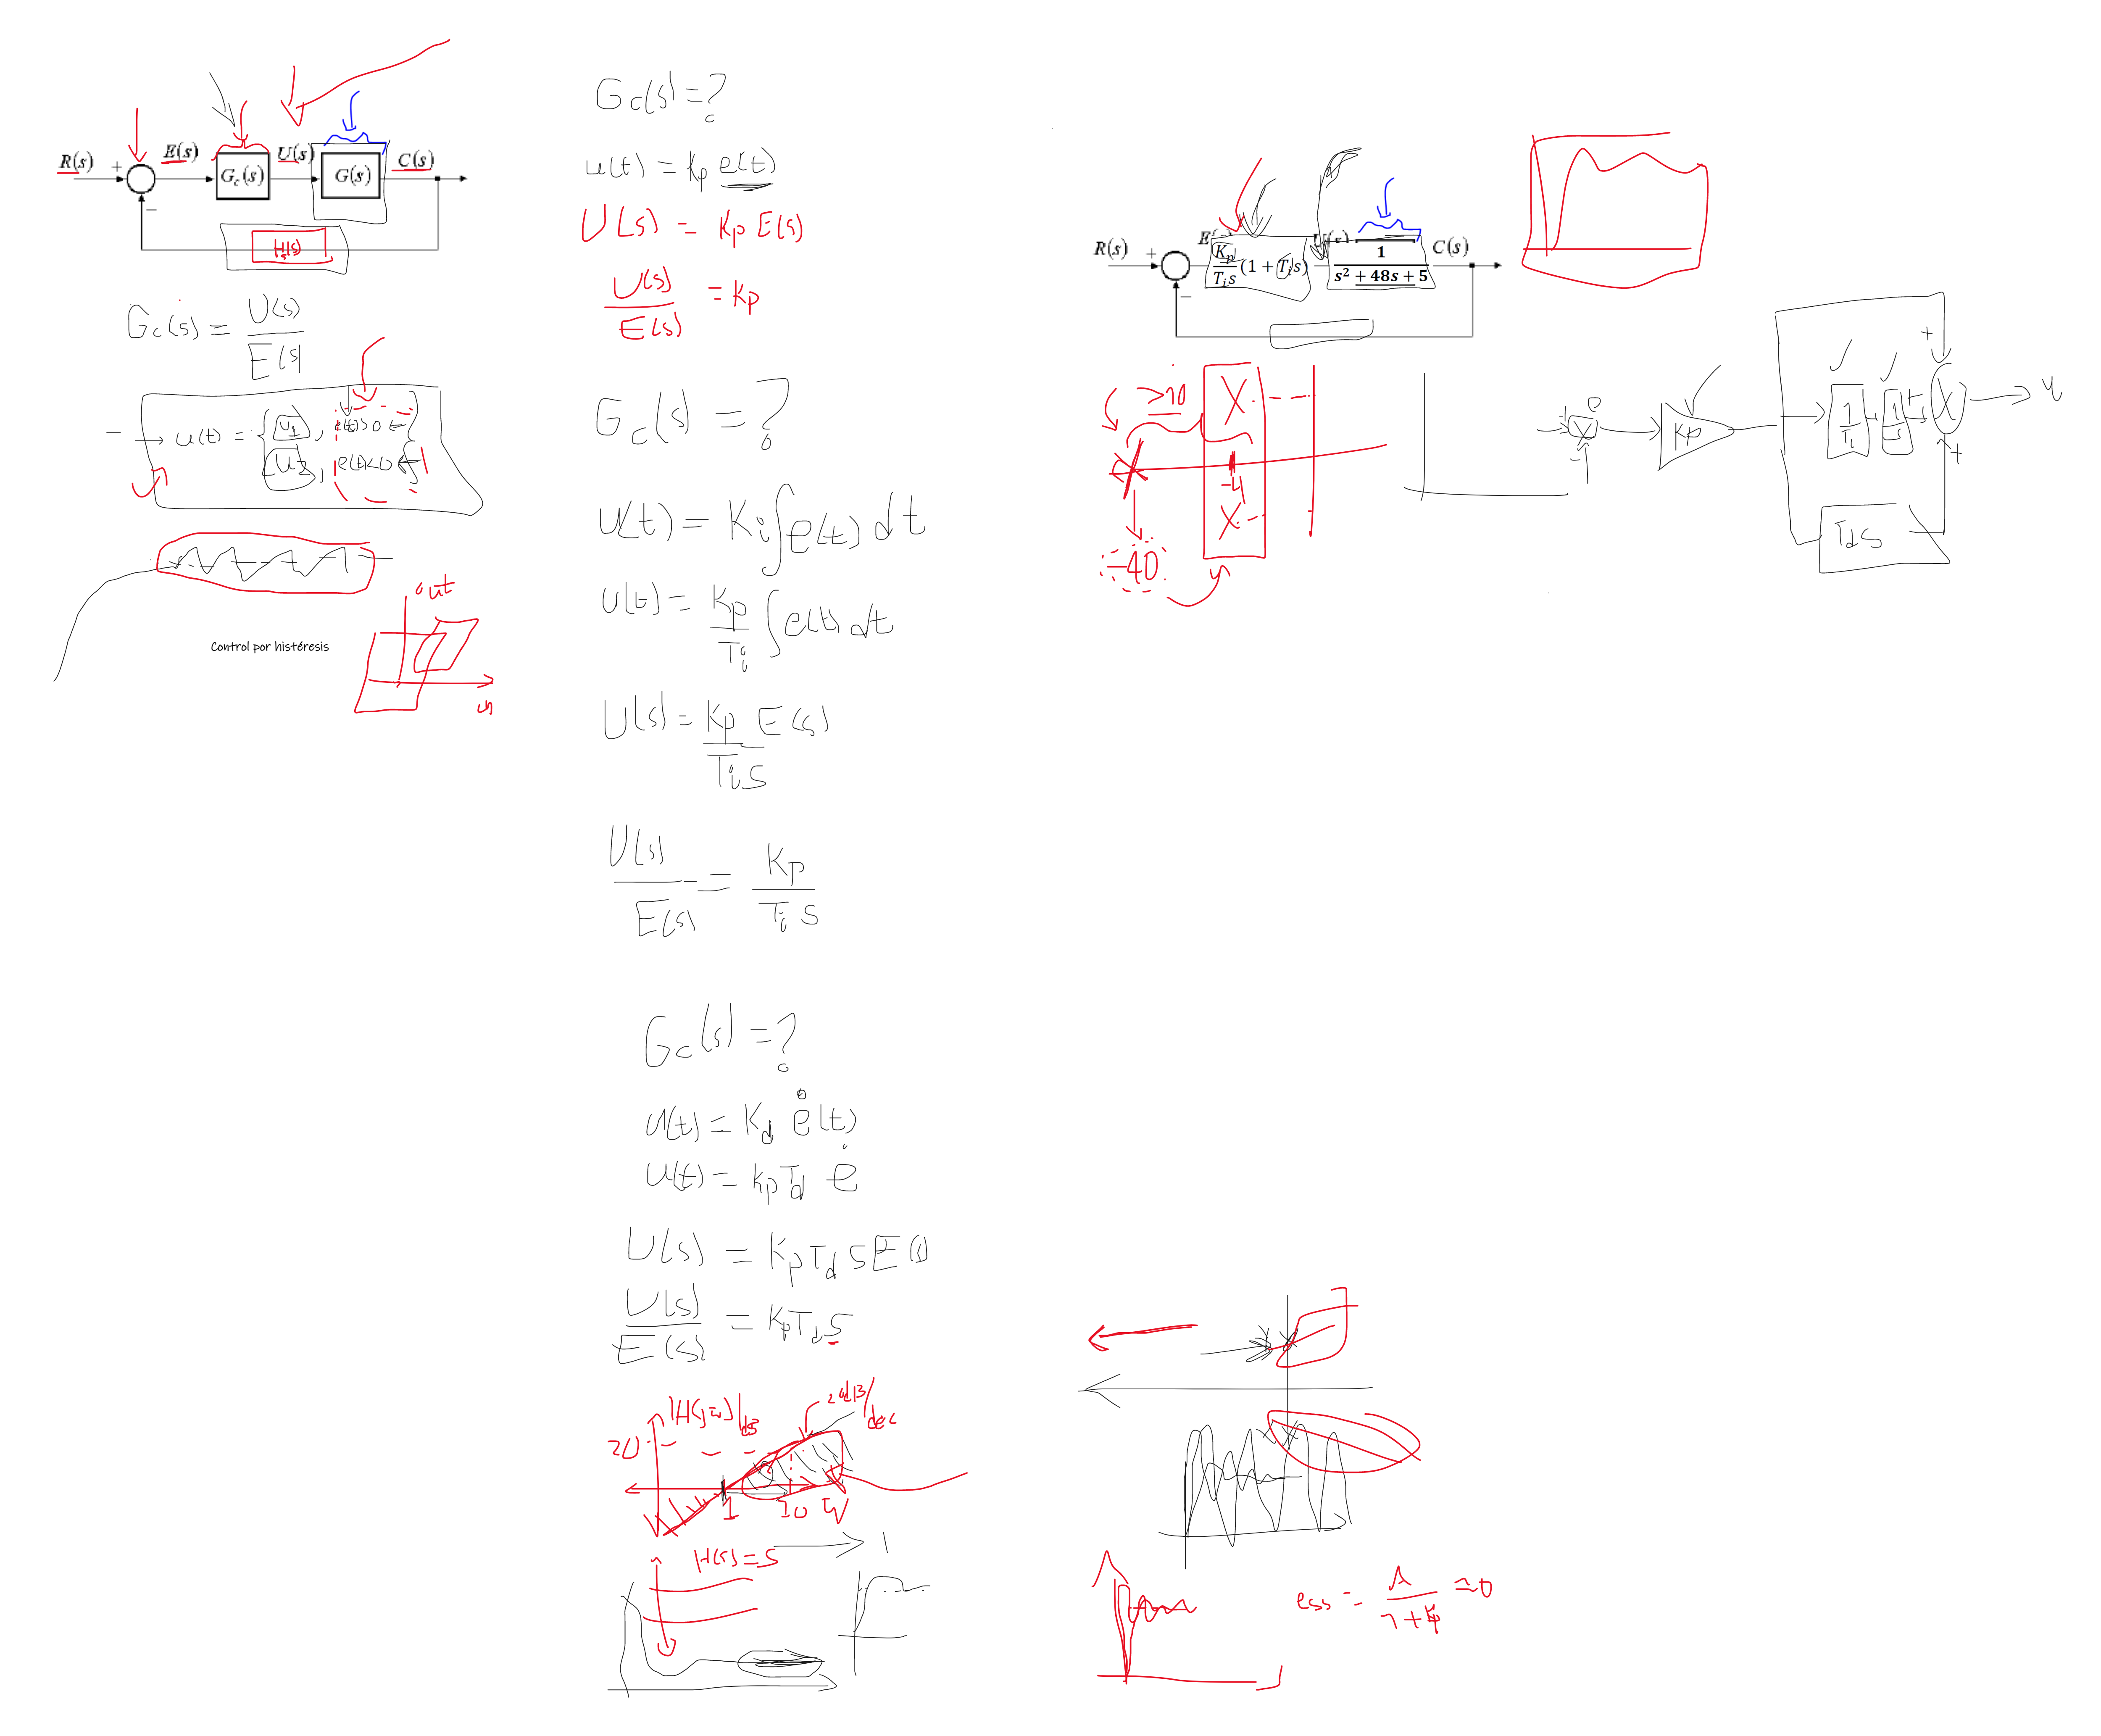 R(s) + E(s) Gc(s) U(s) G(s) C(s)
−
H(s)
Gc(s) = U(s) / E(s)
u(t) = { U1, e(t)>0
U2, e(t)<0 }
out
Control por histéresis
in
Gc(s) = ?
u(t) = Kp e(t)
U(s) = Kp E(s)
U(s) / E(s) = Kp
Gc(s) = ?
u(t) = Ki ∫ e(t) dt
u(t) = Kp / Ti ∫ e(t) dt
U(s) = Kp / Ti s E(s)
U(s) / E(s) = Kp / Ti s
Gc(s) = ?
u(t) = Kd ė(t)
u(t) = Kp Td ė
U(s) = Kp Td s E(s)
U(s) / E(s) = Kp Td s
|H(jω)|dB
20dB/dec
20
1 10 W
H(s) = s
1
R(s) + Kp / Ti s (1 + Ti s) 1 / s² + 48s + 5 C(s)
−
>10
-4
-40
e
+
-
Kp
1 / Ti
1 / s
Td s
+
+
+
u
ess = 1 / 1 + Kp ≃ 0